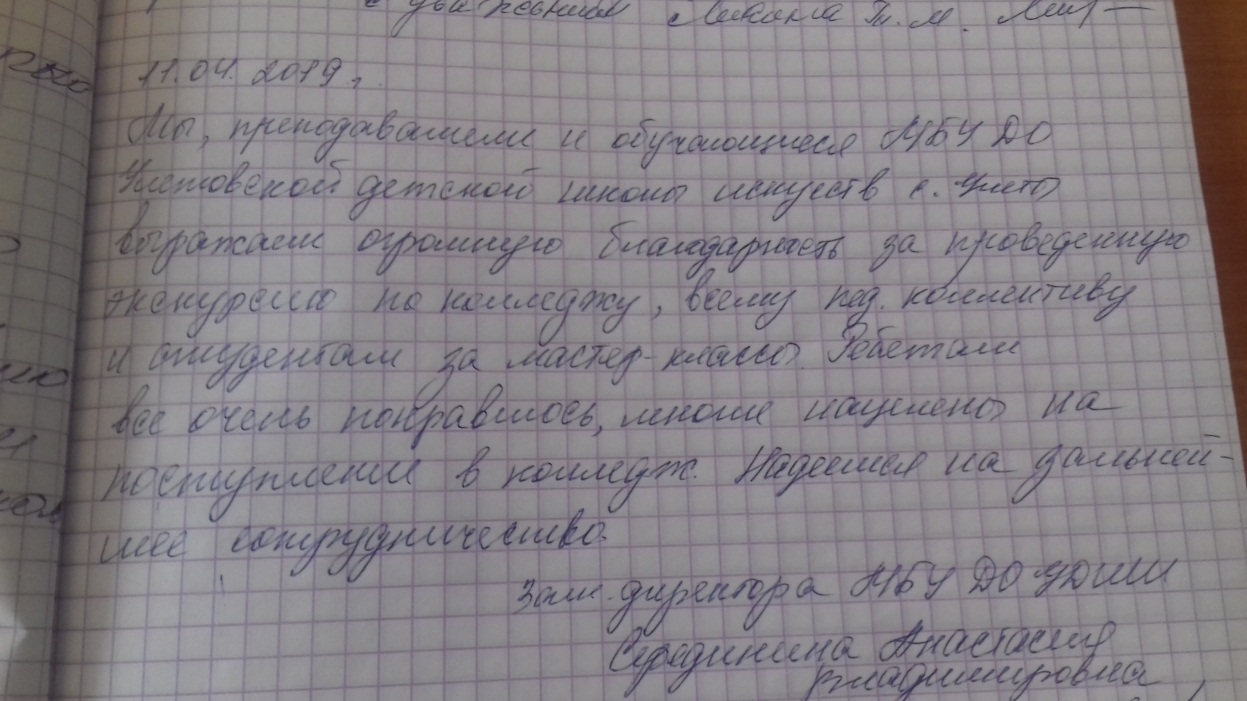 с уважением Т. М.
11.04.2019 г.
Мы, преподаватели и обучающиеся МБУ ДО
Улетовской детской школы искуств с. Улеты
выражаем огромную благодарность за проведенную
экскурсию по колледжу, всему пед. коллективу
и студентам за мастер-классы. Ребятам
все очень понравилось, многие нацелены на
поступление в колледж. Надеемся на дальней-
шее сотрудничество.
Зам. директора МБУ ДО УДШИ
Серединина Анастасия
Владимировна